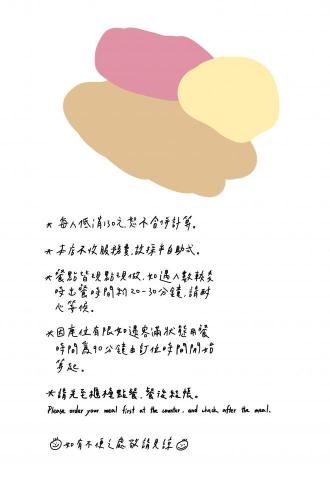 * 每人低消150元,恕不合併計算。
* 本店不收服務費,故採半自助式。
* 餐點皆現點現做,如遇人數較多
時出餐時間約20-30分鐘,請耐
心等候。
* 因座位有限如遇客滿狀態用餐
時間為90分鐘由訂位時間開始
算起。
* 請先至櫃檯點餐、餐後結帳。
Please order your meal first at the counter, and check after the meal.
如有不便之處敬請見諒